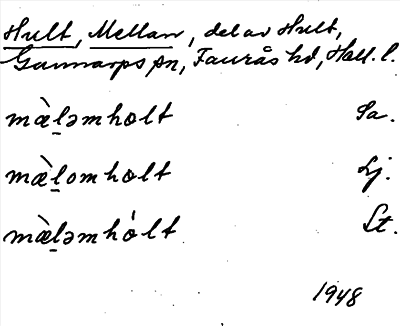 Hult, Mellan, del av Hult,
Gunnarps sn, Faurås hd, Hall. l.
mæ̀l̠əmholt Sa.
mæ̀l̠omholt Lj.
mæ̀l̠əmhólt St.
1948